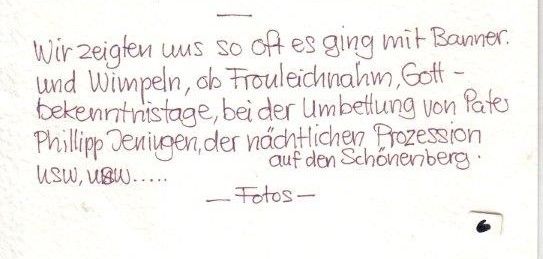 Wir zeigten uns so oft es ging mit Banner.
und Wimpeln, ob Frouleichnahm, Gott-
bekenntnistage, bei der Umbettung von Pater
Phillipp Jeningen, der nächtlichen Prozession
auf den Schönenberg.
usw, usw.....
- Fotos -
6